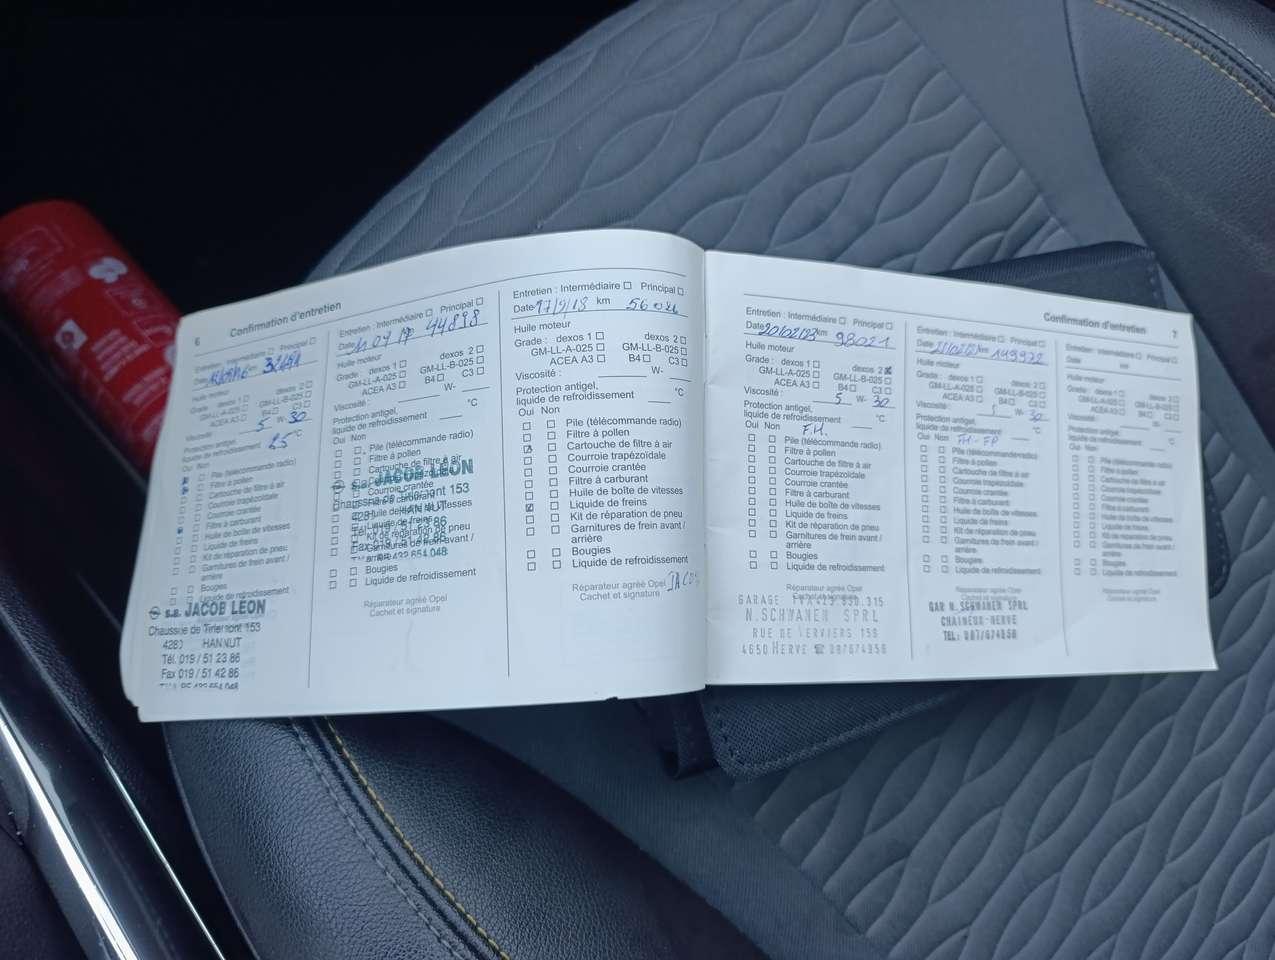 6
Confirmation d'entretien
Entretien : Intermédiaire Principal
Date km 32451
Huile moteur
Grade : dexos 1 dexos 2
GM-LL-A-025 GM-LL-B-025
ACEA A3 B4 C3
Viscosité : 5 W- 30
Protection antigel,
liquide de refroidissement 25 °C
Oui Non
Pile (télécommande radio)
Filtre à pollen
Cartouche de filtre à air
Courroie trapézoïdale
Courroie crantée
Filtre à carburant
Huile de boîte de vitesses
Liquide de freins
Kit de réparation de pneu
Garnitures de frein avant /
arrière
Bougies
Liquide de refroidissement
S.A. JACOB LEON
Chaussée de Tirlemont 153
4280 HANNUT
Tél. 019 / 51 23 86
Fax 019 / 51 42 86
Entretien : Intermédiaire Principal
Date 44898
Huile moteur
Grade : dexos 1 dexos 2
GM-LL-A-025 GM-LL-B-025
ACEA A3 B4 C3
Viscosité : W-
Protection antigel,
liquide de refroidissement °C
Oui Non
Pile (télécommande radio)
Filtre à pollen
Cartouche de filtre à air
Courroie crantée
Kit de réparation de pneu
Garnitures de frein avant /
arrière
Bougies
Liquide de refroidissement
S.A. JACOB LEON
Chaussée de Tirlemont 153
HANNUT
Réparateur agréé Opel
Cachet et signature
Entretien : Intermédiaire Principal
Date 17/9/18 km
Huile moteur
Grade : dexos 1 dexos 2
GM-LL-A-025 GM-LL-B-025
ACEA A3 B4 C3
Viscosité : W-
Protection antigel,
liquide de refroidissement °C
Oui Non
Pile (télécommande radio)
Filtre à pollen
Cartouche de filtre à air
Courroie trapézoïdale
Courroie crantée
Filtre à carburant
Huile de boîte de vitesses
Liquide de freins
Kit de réparation de pneu
Garnitures de frein avant /
arrière
Bougies
Liquide de refroidissement
Réparateur agréé Opel
Cachet et signature
Confirmation d'entretien
7
Entretien : Intermédiaire Principal
Date 20/02/23 km 98021
Huile moteur
Grade : dexos 1 dexos 2
GM-LL-A-025 GM-LL-B-025
ACEA A3 B4 C3
Viscosité : 5 W- 30
Protection antigel,
liquide de refroidissement °C
Oui Non F.H.
Pile (télécommande radio)
Filtre à pollen
Cartouche de filtre à air
Courroie trapézoïdale
Courroie crantée
Filtre à carburant
Huile de boîte de vitesses
Liquide de freins
Kit de réparation de pneu
Garnitures de frein avant /
arrière
Bougies
Liquide de refroidissement
Réparateur agréé Opel
Cachet et signature
GARAGE
N. SCHWANEN SPRL
RUE DE VERVIERS 159
4650 HERVE ☎ 087/674958
Entretien : Intermédiaire Principal
Date km 119972
Huile moteur
Grade : dexos 1 dexos 2
GM-LL-A-025 GM-LL-B-025
ACEA A3 B4 C3
Viscosité : W- 30
Protection antigel,
liquide de refroidissement °C
Oui Non FH-FP
Pile (télécommande radio)
Filtre à pollen
Cartouche de filtre à air
Courroie trapézoïdale
Courroie crantée
Filtre à carburant
Huile de boîte de vitesses
Liquide de freins
Kit de réparation de pneu
Garnitures de frein avant /
arrière
Bougies
Liquide de refroidissement
GAR N. SCHWANEN SPRL
CHAINEUX-HERVE
TEL: 087/674958
Entretien : Intermédiaire Principal
Date
Huile moteur
Grade : dexos 1 dexos 2
GM-LL-A-025 GM-LL-B-025
ACEA A3 B4 C3
Viscosité : W-
Protection antigel,
liquide de refroidissement °C
Oui Non
Pile (télécommande radio)
Filtre à pollen
Cartouche de filtre à air
Courroie trapézoïdale
Courroie crantée
Filtre à carburant
Huile de boîte de vitesses
Liquide de freins
Kit de réparation de pneu
Garnitures de frein avant /
arrière
Bougies
Liquide de refroidissement
Réparateur agréé Opel
Cachet et signature